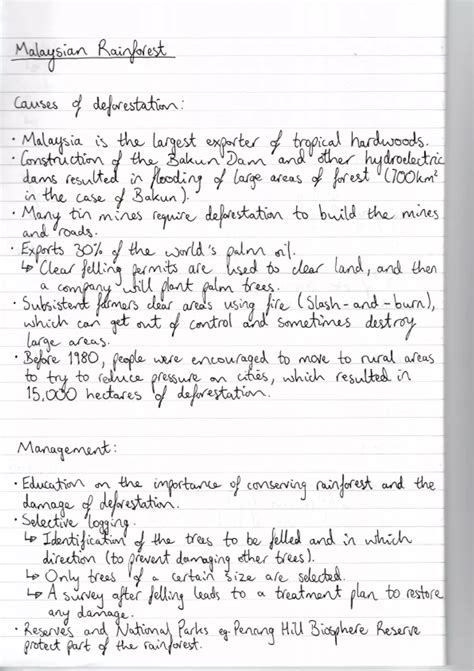 Malaysian Rainforest
Causes of deforestation:
· Malaysia is the largest exporter of tropical hardwoods.
· Construction of the Bakun Dam and other hydroelectric
dams resulted in flooding of large areas of forest (700km²
in the case of Bakun).
· Many tin mines require deforestation to build the mines
and roads.
· Exports 30% of the world's palm oil.
↳ Clear felling permits are used to clear land, and then
a company will plant palm trees.
· Subsistent farmers clear areas using fire (Slash-and-burn),
which can get out of control and sometimes destroy
large areas.
· Before 1980, people were encouraged to move to rural areas
to try to reduce pressure on cities, which resulted in
15,000 hectares of deforestation.
Management:
· Education on the importance of conserving rainforest and the
damage of deforestation.
· Selective logging.
↳ Identification of the trees to be felled and in which
direction (to prevent damaging other trees).
↳ Only trees of a certain size are selected.
↳ A survey after felling leads to a treatment plan to restore
any damage.
· Reserves and National Parks eg. Penang Hill Biosphere Reserve
protect part of the rainforest.